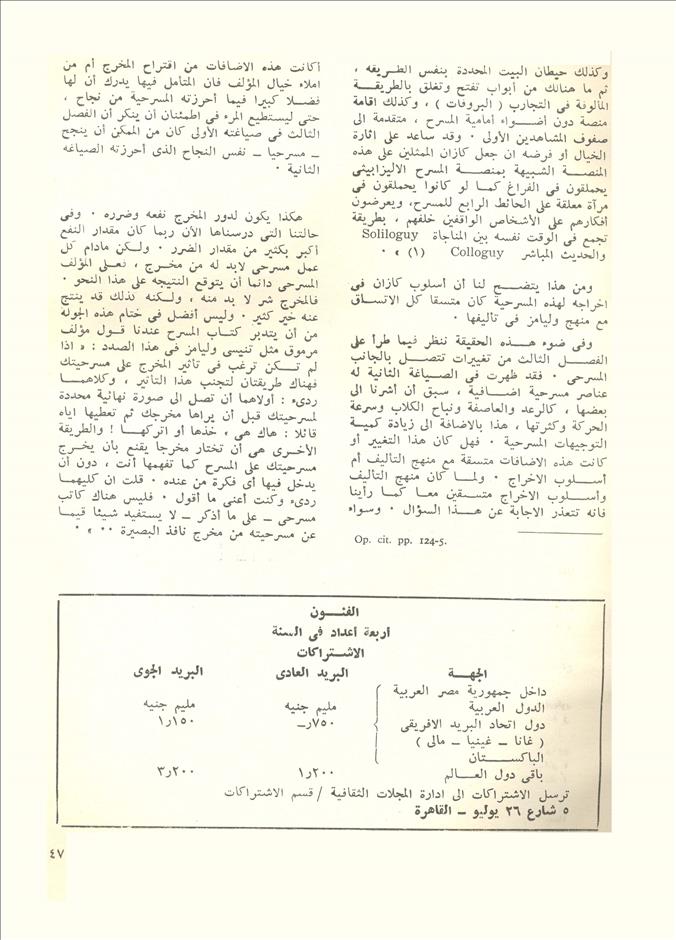 وكذلك حيطان البيت المحددة بنفس الطريقة ،
ثم ما هنالك من أبواب تفتح وتغلق بالطريقــة
المألوفة فى التجارب ( البروفات ) ، وكذلك اقامة
منصة دون أضــواء أمامية المسرح ، متقدمة الى
صفوف المشاهدين الأولى ٠ وقد ساعد على اثارة
الخيال أو فرضه ان جعل كازان الممثلين على هذه
المنصـة الشبيهة بمنصـة المسرح الاليزابيثى
يحملقون فى الفراغ كمـا لو كانوا يحملقون فى
مرآة معلقة على الحائط الرابع للمسرح، ويعرضون
أفكارهم على الأشخاص الواقفين خلفهم ، بطريقة
تجمع فى الوقت نفسه بين المناجاة Soliloguy
والحديث المباشر Colloguy (١) » ٠
ومن هذا يتضــح لنا أن أسلوب كازان فى
اخراجه لهذه المسرحية كان متسقا كل الاتسـاق
مع منهج وليامز فى تأليفها ٠
وفى ضوء هــذه الحقيقة ننظر فيما طرأ على
الفصــل الثالث من تغييرات تتصـل بالجانب
المسرحى ٠ فقد ظهرت فى الصـياغة الثانية له
عناصر مسرحية اضـافية ، سبق أن أشرنا الى
بعضها ، كالرعد والعاصفة ونباح الكلاب وسرعة
الحركة وكثرتها ، هذا بالاضافة الى زيادة كميـة
التوجيهات المسرحية ٠ فهل كان هذا التغيير أو
كانت هذه الاضافات متسقة مع منهج التأليف أم
أســلوب الاخراج ٠ ولمـا كان منهج التأليف
وأسـلوب الاخراج متسـقين معـا كمـا رأينا
فانه تتعذر الاجابة عن هــذا السؤال ٠ وسواء
Op. cit. pp. 124-5.
أكانت هذه الاضافات من اقتراح المخرج أم من
املاء خيال المؤلف فان المتأمل فيها يدرك أن لها
فضـلا كبيرا فيما أحرزته المسرحية من نجاح ،
حتى ليستطيع المرء فى اطمئنان أن ينكر أن الفصل
الثالث فى صياغته الأولى كان من الممكن أن ينجح
ـ مسرحيا ـ نفس النجاح الذى أحرزته الصياغه
الثانية ٠
هكذا يكون لدور المخرج نفعه وضرره ٠ وفى
حالتنا التى درسناها الآن ربما كان مقدار النفع
أكبر بكثير من مقدار الضرر ٠ ولـكن مادام كل
عمل مسرحى لابد له من مخـرج ، فعـلى المؤلف
المسرحى دائما أن يتوقع النتيجه على هذا النحو ٠
فالمخرج شر لا بد منه ، ولـكنه كذلك قد ينتج
عنه خير كثير ٠ وليس أفضل فى ختام هذه الجوله
من أن يتدبر كتـاب المسرح عندنا قـول مؤلف
مرموق مثل تنيسى وليامز فى هذا الصدد : « اذا
لم تـكن ترغب فى تأثير المخرج على مسرحيتك
فهناك طريقتان لتجنب هذا التأثير ، وكلاهمـا
ردىء : أولاهما أن تصل الى صورة نهائية محددة
لمسرحيتك قبل أن يراها مخرجك ثم تعطيها اياه
قائلا : هاك هى ، خذها أو اتركهـا ! والطريقة
الأخـرى هى أن تختار مخرجا يقنع بأن يخـرج
مسرحيتك على المسرح كما تفهمها أنت ، دون أن
يدخل فيها أى فكرة من عنده ٠ قلت ان كليهمـا
ردىء وكنت أعنى ما أقول ٠ فليس هناك كاتب
مسرحى ـ على ما أذكر ـ لا يستفيد شيئا قيمـا
عن مسرحيته من مخرج نافذ البصيرة ٠٠ » ٠
الفنــون
أربعة أعداد فى السنة
الاشتراكات
الجهــة البريد العادى البريد الجوى
داخل جمهورية مصر العربية
الدول العربية مليم جنيه مليم جنيه
دول اتحاد البريد الافريقى ٧٥٠رـ ١٥٠ر١
( غانا ـ غينيا ـ مالى )
الباكســـتان
باقى دول العــالم ٢٠٠ر١ ٢٠٠ر٣
ترسل الاشتراكات الى ادارة المجلات الثقافية / قسم الاشتراكات
٥ شارع ٢٦ يوليو ـ القاهرة
٤٧